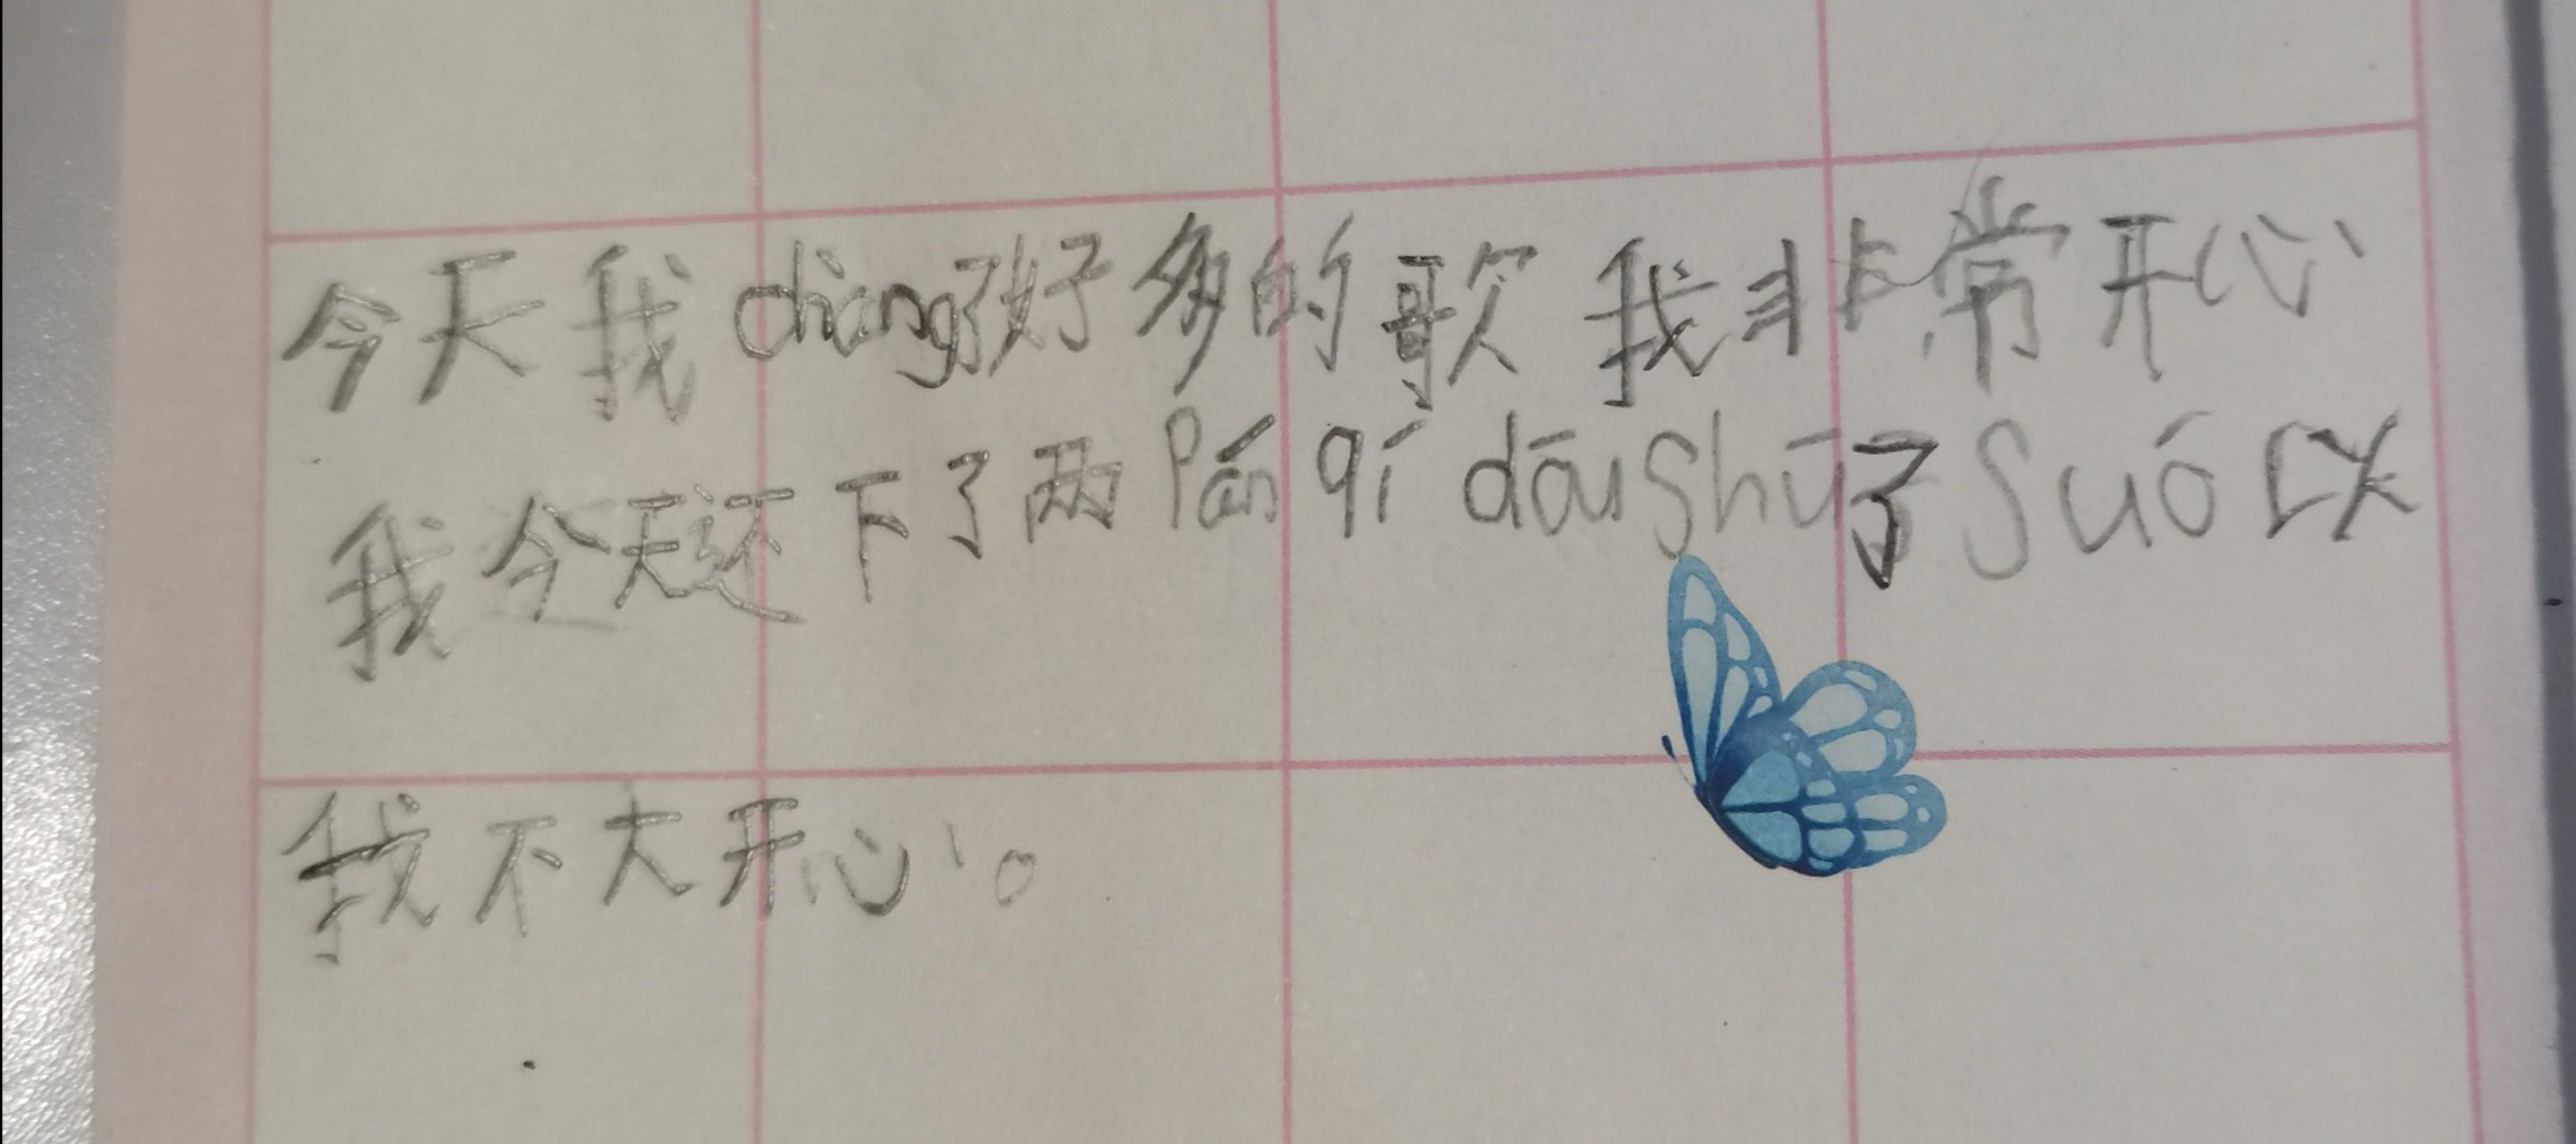 今天我chàng了好多的歌我非常开心
我今天还下了两Pán qí dōu shū了Suó以
我不大开心。